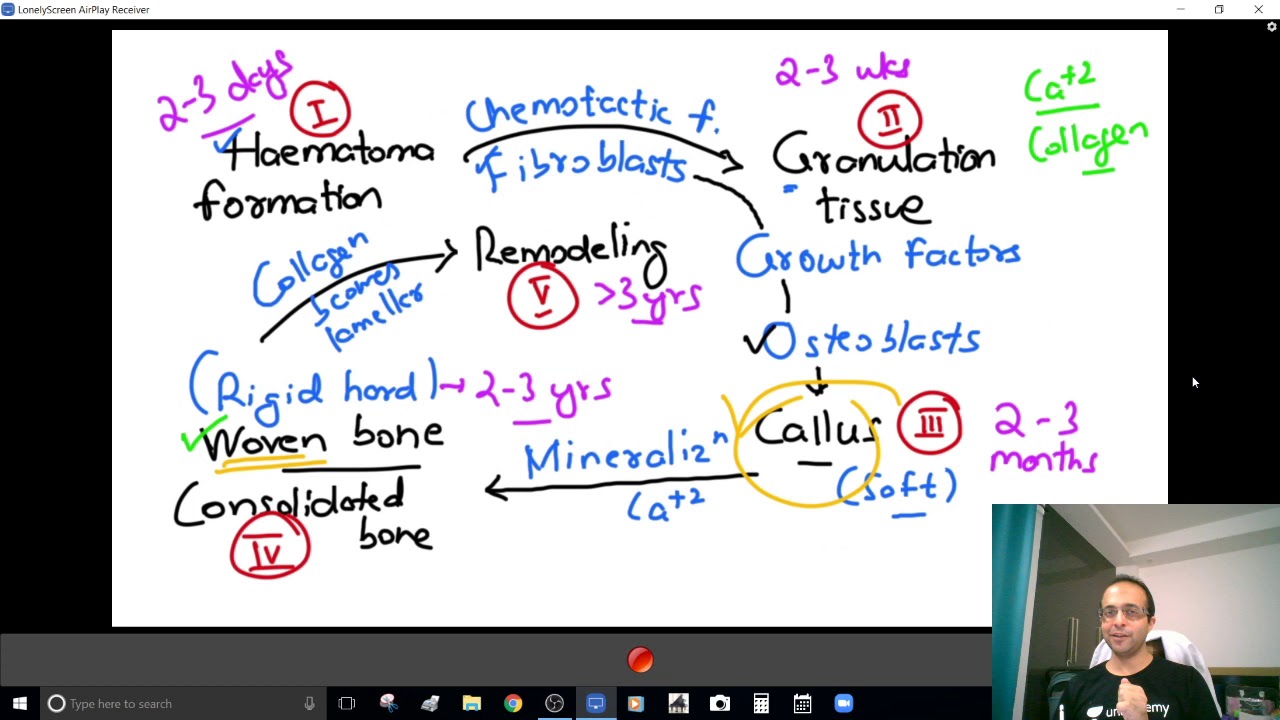 LonelyScreen AirPlay Receiver
2-3 days
I
Haematoma
formation
Chemotactic f.
Fibroblasts
2-3 wks
II
Granulation
tissue
Ca+2
Collagen
Growth Factors
Osteoblasts
Callus
III
2-3
months
(Soft)
Mineralizn
Ca+2
(Rigid hard) → 2-3 yrs
Woven bone
Consolidated
bone
IV
Collagen
becomes
lameller
Remodeling
V
>3 yrs
Type here to search